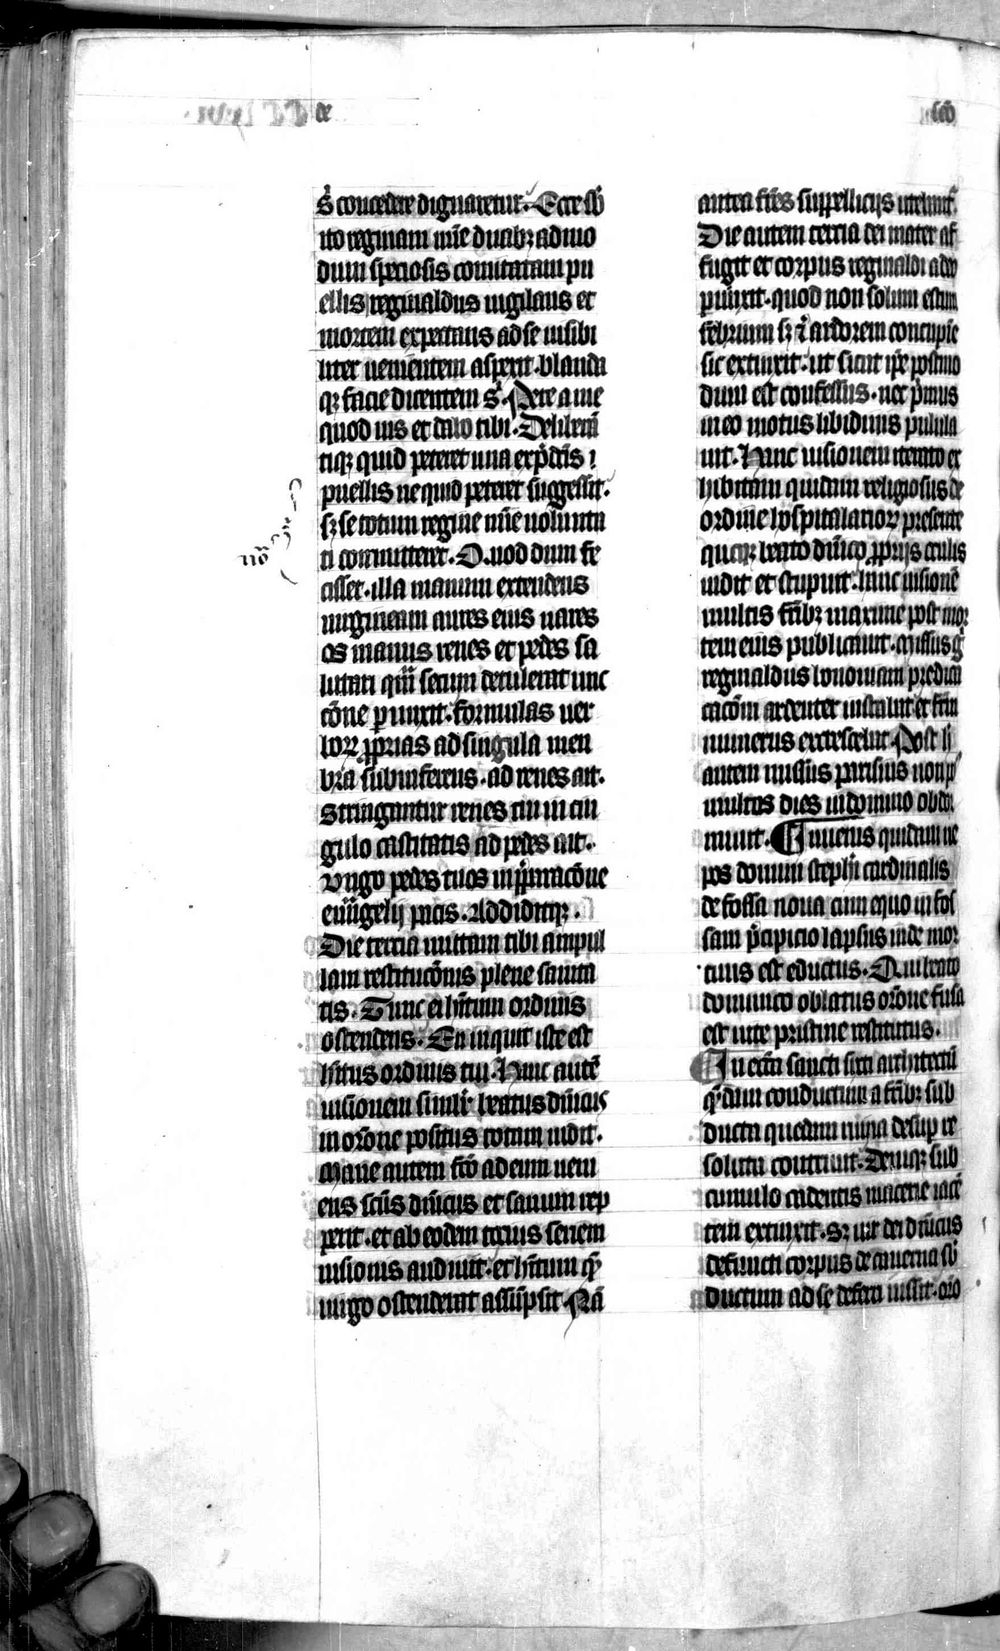 de
sco
s̄ concedere dignaretur. Ecce sb̄
ito reginam mīe duabꝫ admo
dum speciosis comitatam pu
ellis reginaldus uigilans et
mortem expectans ad se uisibi
liter uenientem aspexit. blanda
qꝫ facie dicentem s̄. Pete a me
quod uis et dabo tibi. Deliberā
tiqꝫ quid peteret una ex p̄dc̄is
puellis ne quid peteret suggessit.
sꝫ se totum regine mīe uolunta
ti committeret. Quod dum fe
cisset. illa manum extendens
uirgineam aures eius nares
os manus renes et pedes sa
lutari quā secum detulerat unc
cōne ꝑunxit. formulas uer
boꝝ ꝓprias ad singula mem
bra subinferens. ad renes ait.
Stringantur renes tui in cin
gulo castitatis ad pedes ait.
Ungo pedes tuos in p̄paracōne
euāgelij pacis. Addiditqꝫ.
Die tercia mittam tibi ampul
lam restitucōnis plene sanita
tis. Tunc ei hītum ordinis
ostendens. En inquit iste est
hītus ordinis tui. Hanc autē
uisionem simili᷑ beatus dn̄icus
in orōne positus totam uidit.
Mane autem fc̄o ad eum ueni
ens sc̄us dn̄icus et sanum rep
perit. et ab eodem tocius seriem
uisionis audiuit. et hītum qȝ
uirgo ostenderat assūpsit Nā
antea fr̄es suppellicijs utebant᷑.
Die autem tercia dei mater af
fugit et corpus reginaldi adeo
ꝑunxit. quod non solum estum
febrium sꝫ ⁊ ardorem concupīe
sic extinxit. ut sicut ip̄e postmo
dum est confessus. nec p̄mus
in eo motus libidinis pulula
uit. Hanc uisionem iterato ex
hibitam quidam religiosus de
ordine hospitalarioꝝ presente
quoqꝫ beato dn̄ico ꝓprijs oculis
uidit et stupuit. hanc uisionē
multis fr̄ibꝫ maxime post mor
tem eius publicauit. Missus g̊
reginaldus bononiam predica
cacōni ardenter instabat et fr̄m
numerus excrescebat Post h̄
autem missus parisius non p̄
multos dies in domino obdor
miuit. Iuuenis quidam ne
pos domini steph̄i cardinalis
de fossa noua cum equo in fos
sam p̄cipicio lapsus inde mor
tuus est eductus. Qui beato
dominico oblatus orōne fusa
est uite pristine restitutus.
In ecc̄a sancti sixti architectū
qͥdam conductum a fr̄ibꝫ sub
ducta quedam ruina desup re
soluta contriuit. Deniqꝫ sub
cumulo cadentis macerie iacē
tem extinxit. Sꝫ uir dei dn̄icus
defuncti corpus de cauerna sb̄
ductum ad se deferri iussit. orō